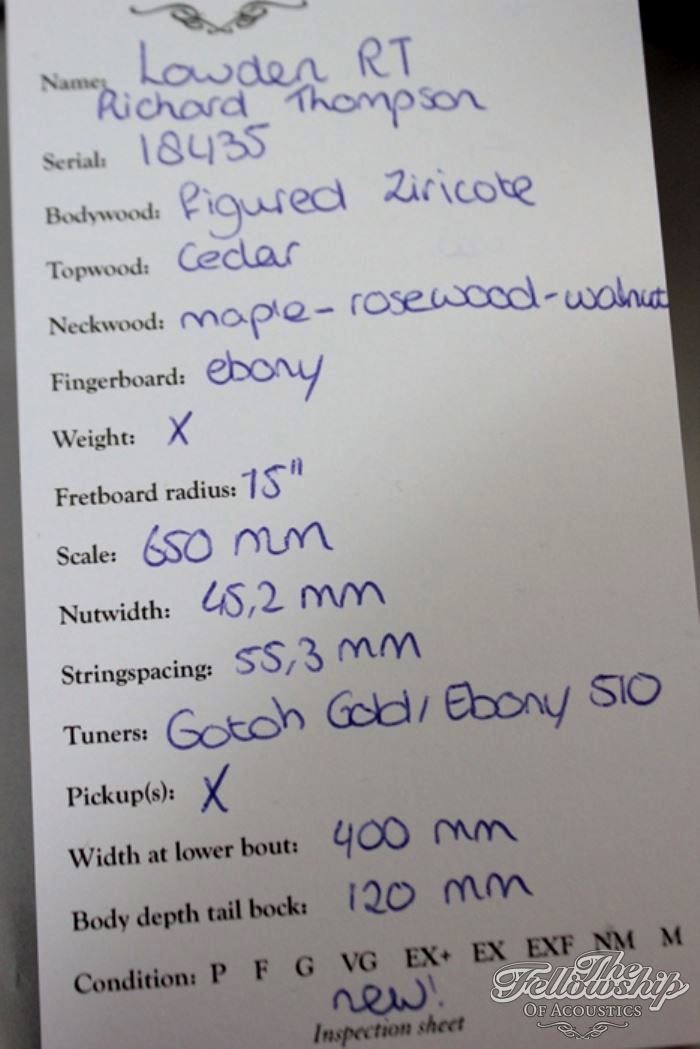 Name: Lowden RT
Richard Thompson
Serial: 18435
Bodywood: Figured Ziricote
Topwood: Cedar
Neckwood: maple-rosewood-walnut
Fingerboard: ebony
Weight: X
Fretboard radius: 15"
Scale: 650 mm
Nutwidth: 45,2 mm
Stringspacing: 55,3 mm
Tuners: Gotoh Gold/Ebony 510
Pickup(s): X
Width at lower bout: 400 mm
Body depth tail bock: 120 mm
Condition: P F G VG EX+ EX EXF NM M
new!
Inspection sheet
The
Fellowship
Of Acoustics